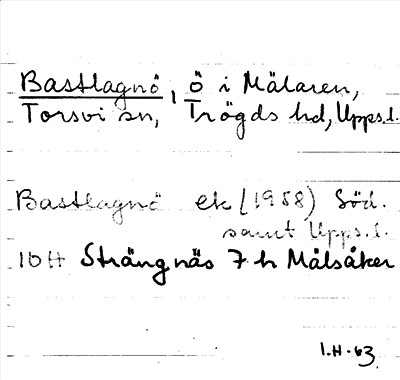 Bastlagnö, ö i Mälaren,
Torsvi sn, Trögds hd, Upps.l.
Bastlagnö ek (1958) Söd.
samt Upps.l.
10H Strängnäs 7h Målsåker
I.H.63